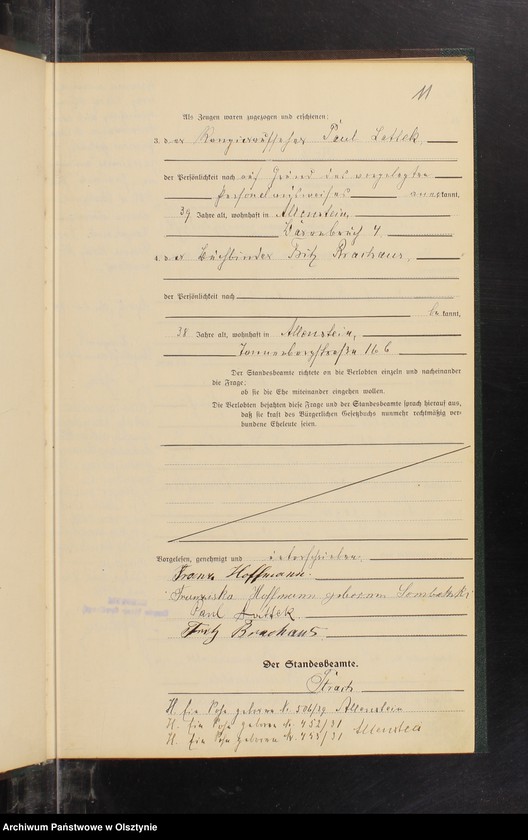 11
Als Zeugen waren zugezogen und erschienen:
3. der Rangieraufseher Paul Lettek,
der Persönlichkeit nach auf Grund des vorgelegten
Personalausweises anerkannt,
39 Jahre alt, wohnhaft in Allenstein,
4.
4. der Buchbinder Fritz Brachaus,
der Persönlichkeit nach
bekannt,
38 Jahre alt, wohnhaft in Allenstein,
16 b
Der Standesbeamte richtete an die Verlobten einzeln und nacheinander
die Frage:
ob sie die Ehe miteinander eingehen wollen.
Die Verlobten bejahten diese Frage und der Standesbeamte sprach hierauf aus,
daß sie kraft des Bürgerlichen Gesetzbuchs nunmehr rechtmäßig ver-
bundene Eheleute seien.
Vorgelesen, genehmigt und unterschrieben.
Franz Hoffmann.
Franziska Hoffmann geborene
Paul Lettek
Fritz Brachaus
Der Standesbeamte.
H. Ein Sohn geboren Nr. 506/29 Allenstein
H. Ein Sohn geboren Nr. 452/31 Allenstein
H. Ein Sohn geboren Nr.
Archiwum Państwowe w Olsztynie